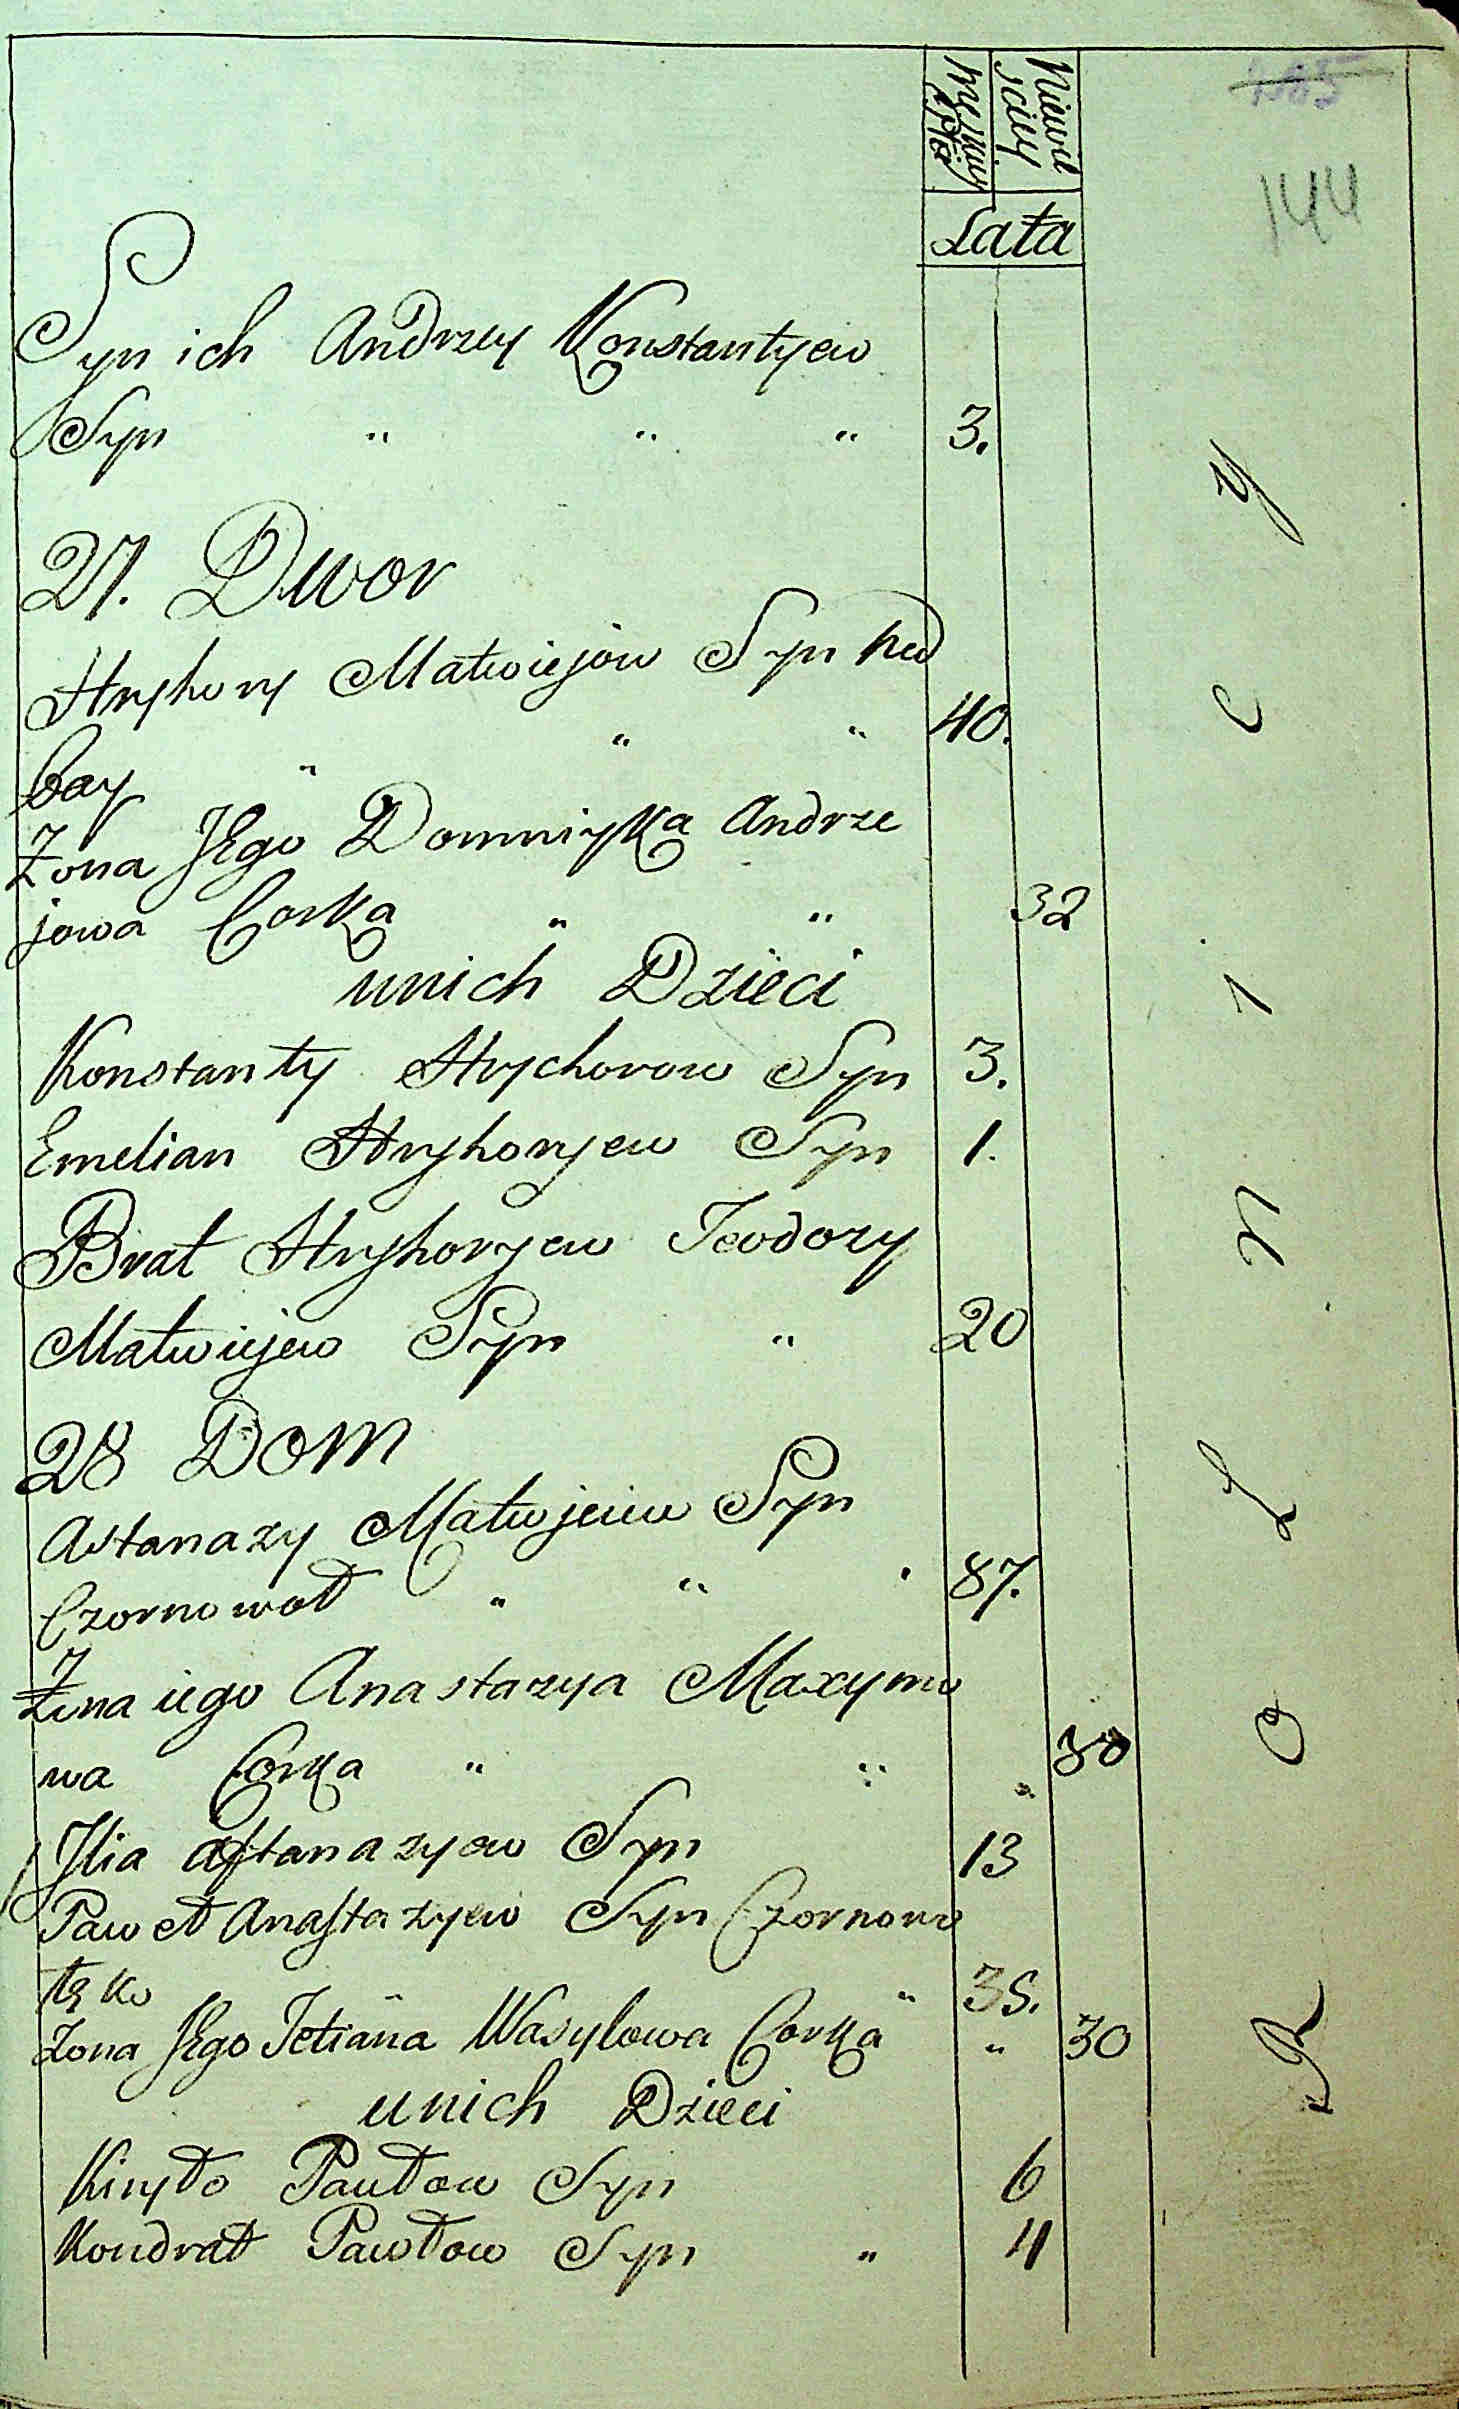 Męskiey Płci
Niewieściey
144
Lata
Syn ich Andrzey Konstantyew
Syn " " " 3.
27. Dwor
Hryhory Matwiejow Syn Ked
bay " " " 40.
Żona JEgo Domniyka Andrze
jowa Corka " " 32
unich Dzieci
Konstanty Hrychorow Syn 3.
Emelian Hryhoryew Syn 1.
Brat Hryhoryew Teodory
Matwiejew Syn " 20
28 Dom
Astanazy Matwjeiew Syn
Czornowoł " " " 87.
Żena iego Anastazya Maxymo
wa Corka " " " 30
Jlia Astanazyew Syn 13
Paweł Anastazyew Syn Czornowo
łęko " 35.
Żona JEgo Tetiana Wasylowa Corka " " 30
unich Dzieci
Kiryło Pawłow Syn 6
Kondrat Pawłow Syn " 4
R o l n i c y